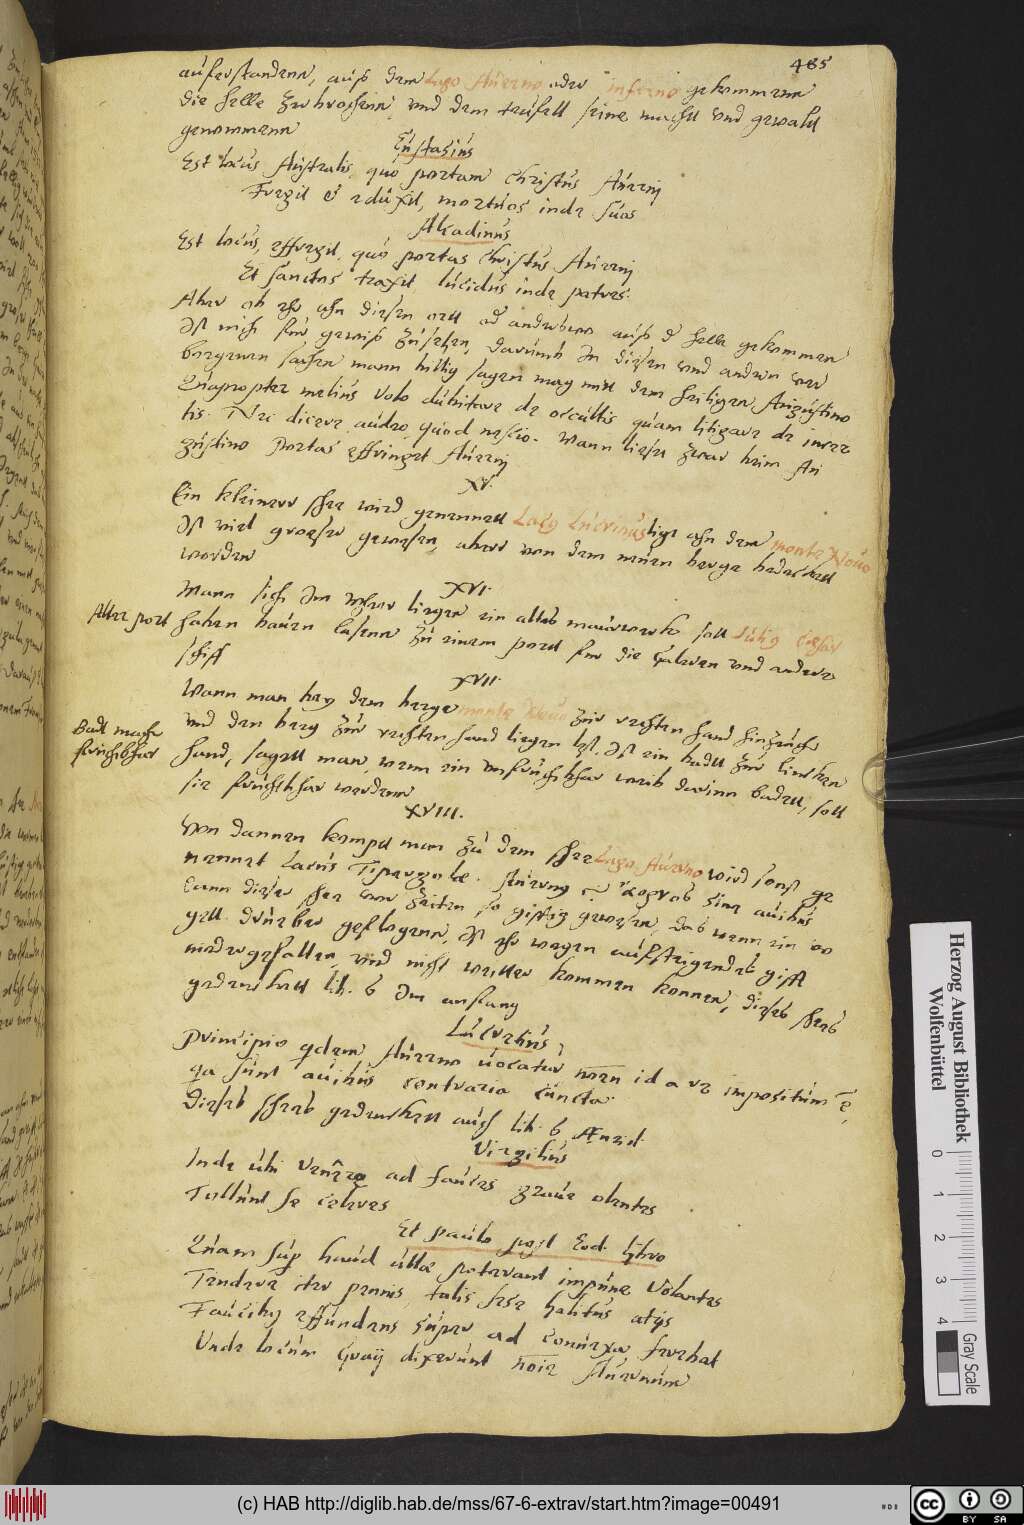 485
auferstandenn, auß dem Lago Auerno oder inferno gekommenn
die helle zerbrochenn, vnd dem teufell seine macht vnd gewalt
genommenn
Eustasius
Est locus Australis, quo portam Christus Auerni
Fregit & eduxit, mortuos inde suos
Alcadinus
Est locus, effregit, quo portas Christus Auerni
Et sanctos traxit lucidus inde patres.
Aber ob ehr ahn diesen ortt od anderswo auß d helle gekommen
Ist nich fur gewiß zusetzen, darumb In diesen vnd andern ver
borgenen sachen mann billig sagen mag mitt dem heiligen Augustino
Quapropter melius volo dubitare de occultis quam litigare de incer
tis. Nec dicere audeo quod nescio. Wann liesu zwar beim Au
gustino Portas effringet Auerni
XV.
Ein kleinerr sehe wird genennett Lacus Lucrinus ligt ahn dem monte Nouo
Ist viel grosser gewesen, aberr von dem neuen berge bedeckett
worden
XVI.
Alter port
Mann sich Im Meher liegen ein altes mauerwerk soll Julius Caesar
haben bauen lassenn zu einem portt fur die Galeren vnd andere
schiff
XVII.
Badt mache
fruchtbhar
Wann man bey dem berge monte Nouo zur rechten hand hinzeucht
vnd den berg zur rechten hand liegen lest, Ist ein badtt zur lincken
hand, sagett man, wenn ein vnfruchtbhar weib darinn badett, soll
sie fruchtbhar werdenn
XVIII.
Von dannen kompt man zu dem sehe Lago Auerno wird sonst ge
nennet Lacus Tipergolae. Auernus ἄορνος sine auibus
Dann dieser sehe vor zeiten, so gifftig gewesen, das wenn ein vo
gell druber geflogenn, Ist ehr wegen auffsteigendes gifft
niedergefallen, vnd nicht weitter kommen konnen, dieses sehes
gedencket lib. 6 Im anfang
Lucretius
Principio qdem Auerno uocatur nomen id a re impositum e,
qa sunt auibus contraria cuncta.
Dieses sehes gedenckett auch lib. 6 Aeneid.
Virgilius
Inde ubi venere ad fauces graue olentes
Tollunt se celeres
Et paulo post Eod. libro
Quam sup haud ullae poterant impune volantes
Tendere iter pennis, talis sese halitus atris
Faucibus effundens super ad conuexa ferebat
Unde locum Graij dixerunt noie Auernum
Herzog August Bibliothek
Wolfenbüttel
0 1 2 3 4
Gray Scale
(c) HAB http://diglib.hab.de/mss/67-6-extrav/start.htm?image=00491
cc BY SA